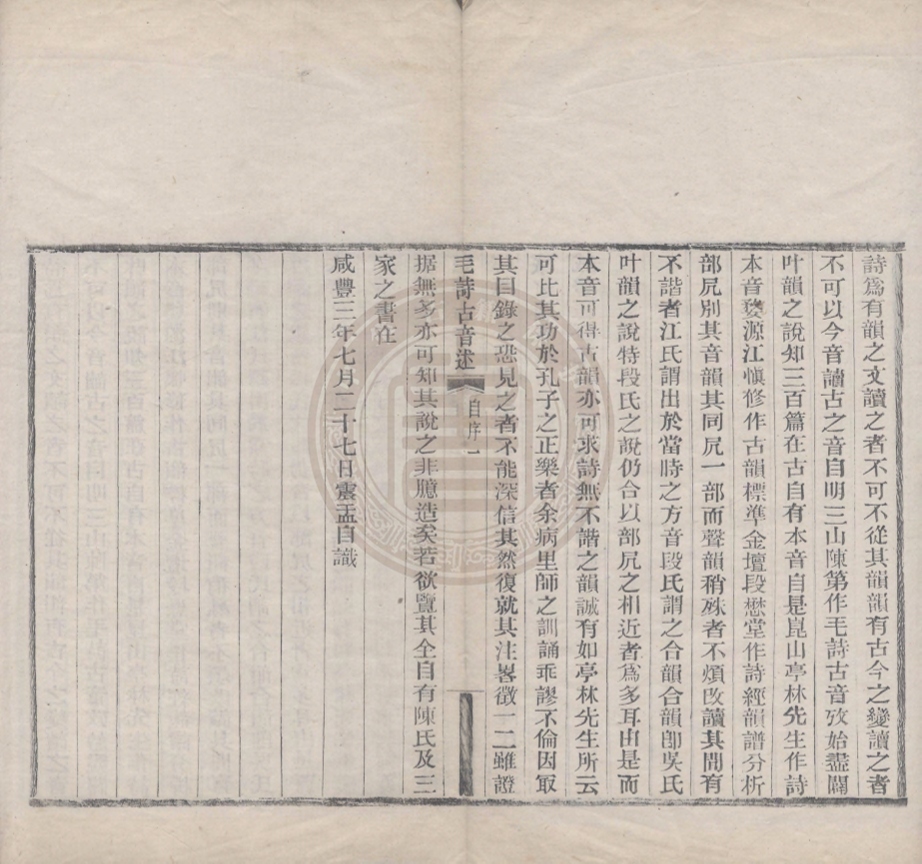 詩爲有韻之文讀之者不可不從其韻韻有古今之變讀之者
不可以今音讀古之音自明三山陳第作毛詩古音攷始盡闢
叶韻之說知三百篇在古自有本音自是崑山亭林先生作詩
本音婺源江愼修作古韻標準金壇段懋堂作詩經韻譜分析
部凥別其音韻其同凥一部而聲韻稍殊者不煩改讀其間有
不諧者江氏謂出於當時之方音段氏謂之合韻合韻卽吳氏
叶韻之說特段氏之說仍合以部凥之相近者爲多耳由是而
本音可得古韻亦可求詩無不諧之韻誠有如亭林先生所云
可比其功於孔子之正樂者余病里師之訓誦乖謬不倫因取
其目錄之恐見之者不能深信其然復就其注畧徵一二雖證
毛詩古音述 自序 一
据無多亦可知其說之非臆造矣若欲覽其全自有陳氏及三
家之書在
咸豐三年七月二十七日霽孟自識